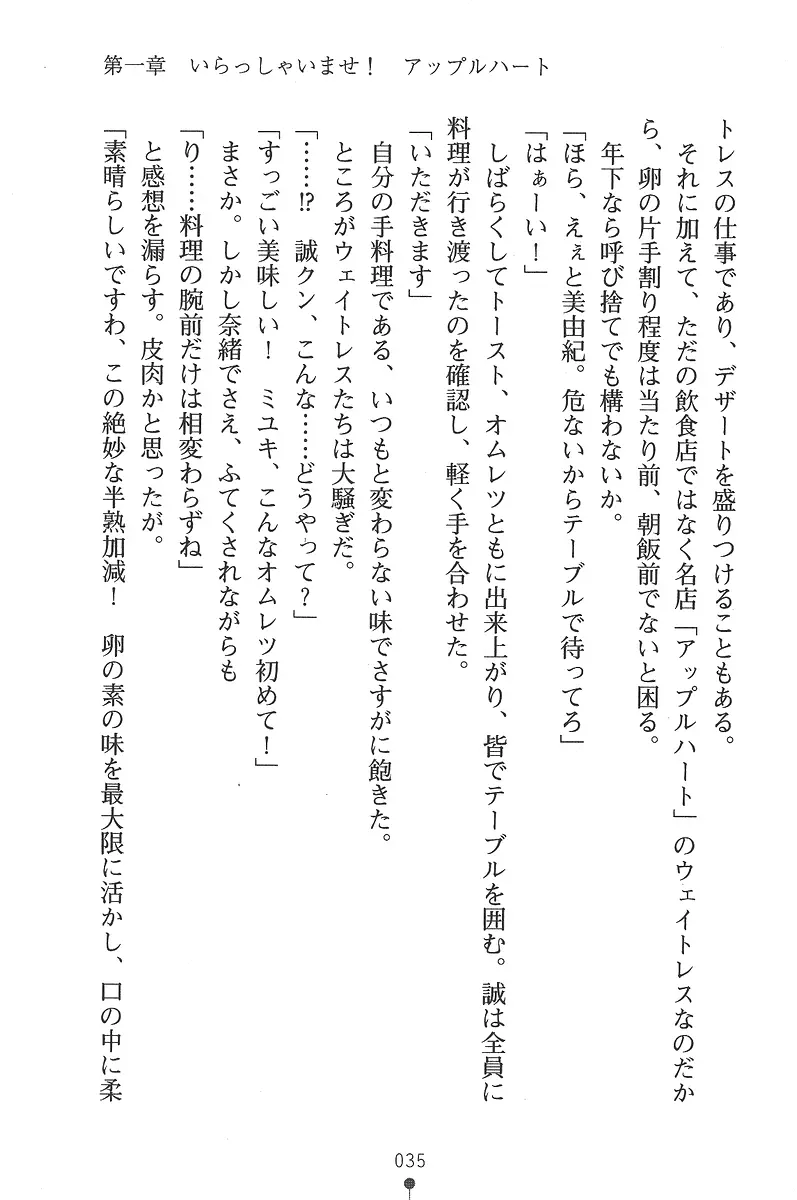 第一章　いらっしゃいませ！　アップルハート
トレスの仕事であり、デザートを盛りつけることもある。
　それに加えて、ただの飲食店ではなく名店「アップルハート」のウェイトレスなのだか
ら、卵の片手割り程度は当たり前、朝飯前でないと困る。
　年下なら呼び捨てでも構わないか。
「ほら、えぇと美由紀。危ないからテーブルで待ってろ」
「はぁーい！」
　しばらくしてトースト、オムレツともに出来上がり、皆でテーブルを囲む。誠は全員に
料理が行き渡ったのを確認し、軽く手を合わせた。
「いただきます」
　自分の手料理である、いつもと変わらない味でさすがに飽きた。
　ところがウェイトレスたちは大騒ぎだ。
「……⁉　誠クン、こんな……どうやって？」
「すっごい美味しい！　ミユキ、こんなオムレツ初めて！」
　まさか。しかし奈緒でさえ、ふてくされながらも
「り……料理の腕前だけは相変わらずね」
　と感想を漏らす。皮肉かと思ったが。
「素晴らしいですわ、この絶妙な半熟加減！　卵の素の味を最大限に活かし、口の中に柔
035